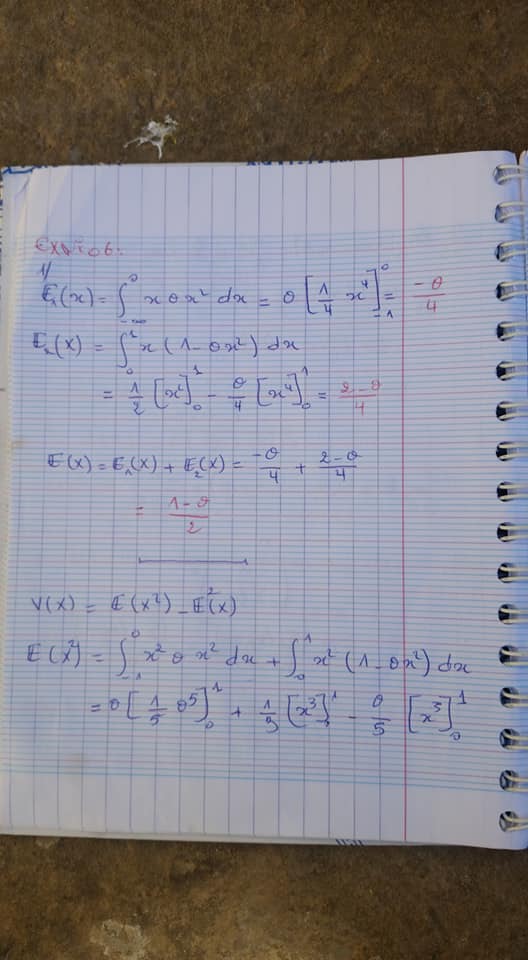 Exo 06:
1/
E₁(x) = ∫_{-∞}^{0} x θ x² dx = θ [1/4 x⁴]_{-1}^{0} = -θ/4
E₂(X) = ∫_{0}^{1} x (1 - θx²) dx
= 1/2 [x²]_{0}^{1} - θ/4 [x⁴]_{0}^{1} = 2-θ/4
E(X) = E₁(X) + E₂(X) = -θ/4 + 2-θ/4
= 1-θ/2
V(X) = E(X²) - E²(X)
E(X²) = ∫_{-1}^{0} x² θ x² dx + ∫_{0}^{1} x² (1 - θx²) dx
= θ [1/5 θ⁵]_{0}^{1} + 1/3 [x³]^{1} - θ/5 [x⁵]_{0}^{1}